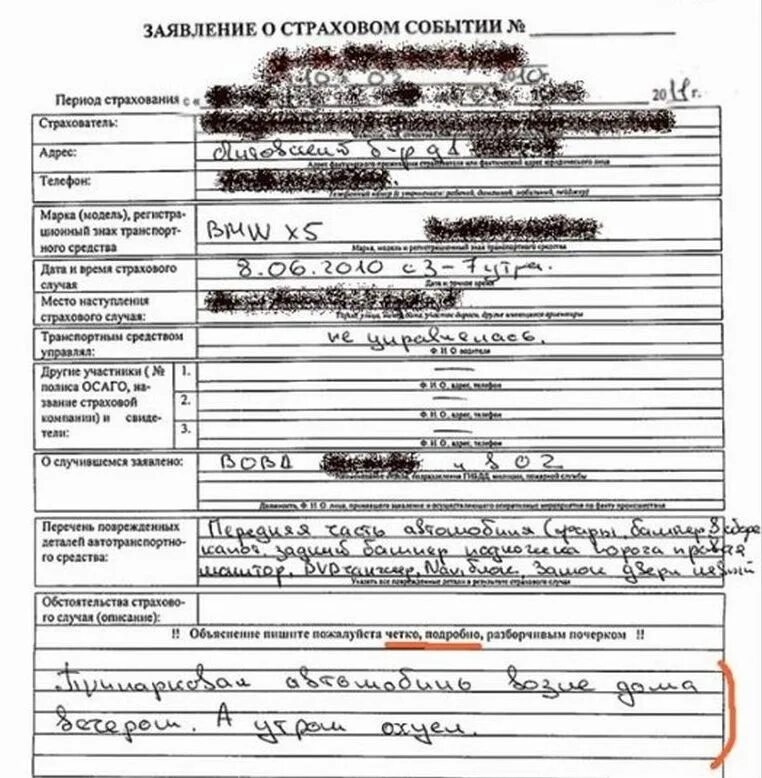 ЗАЯВЛЕНИЕ О СТРАХОВОМ СОБЫТИИ №
2010г.
Период страхования с « 2011 г.
Страхователь:
Адрес: Литовский б-р д1
Адрес фактического проживания страхователя или фактический адрес юридического лица
Телефон:
Телефонный номер (с уточнением: рабочий, домашний, мобильный, пейджер)
Марка (модель), регистра-
ционный знак транспорт-
ного средства
BMW X5
Марка, модель и регистрационный знак транспортного средства
Дата и время страхового
случая
8.06.2010 с 3-7 утра.
Дата и точное время
Место наступления
страхового случая:
Транспортным средством
управлял:
не управлялась.
Ф. И. О. водителя
Другие участники ( №
полиса ОСАГО, на-
звание страховой
компании) и свиде-
тели:
1. —
Ф. И. О., адрес, телефон
2. —
Ф. И. О., адрес, телефон
3. —
Ф. И. О., адрес, телефон
О случившемся заявлено: В ОВД
Наименование отдела, подразделения ГИБДД, милиции, пожарной службы
Должность, Ф. И. О. лица, принявшего заявление и осуществляющего оперативные мероприятия по факту происшествия
Перечень поврежденных
деталей автотранспортно-
го средства:
Передняя часть автомобиля (фары, бампер в сборе
капот, задний бампер порога правая
монитор, DVD чейнжер, Navi блок, замок двери левый
Указать все поврежденные детали в результате страхового случая
Обстоятельства страхово-
го случая (описание):
!! Объяснение пишите пожалуйста четко, подробно, разборчивым почерком !!
Припарковал автомобиль возле дома
вечером. А утром охуел.